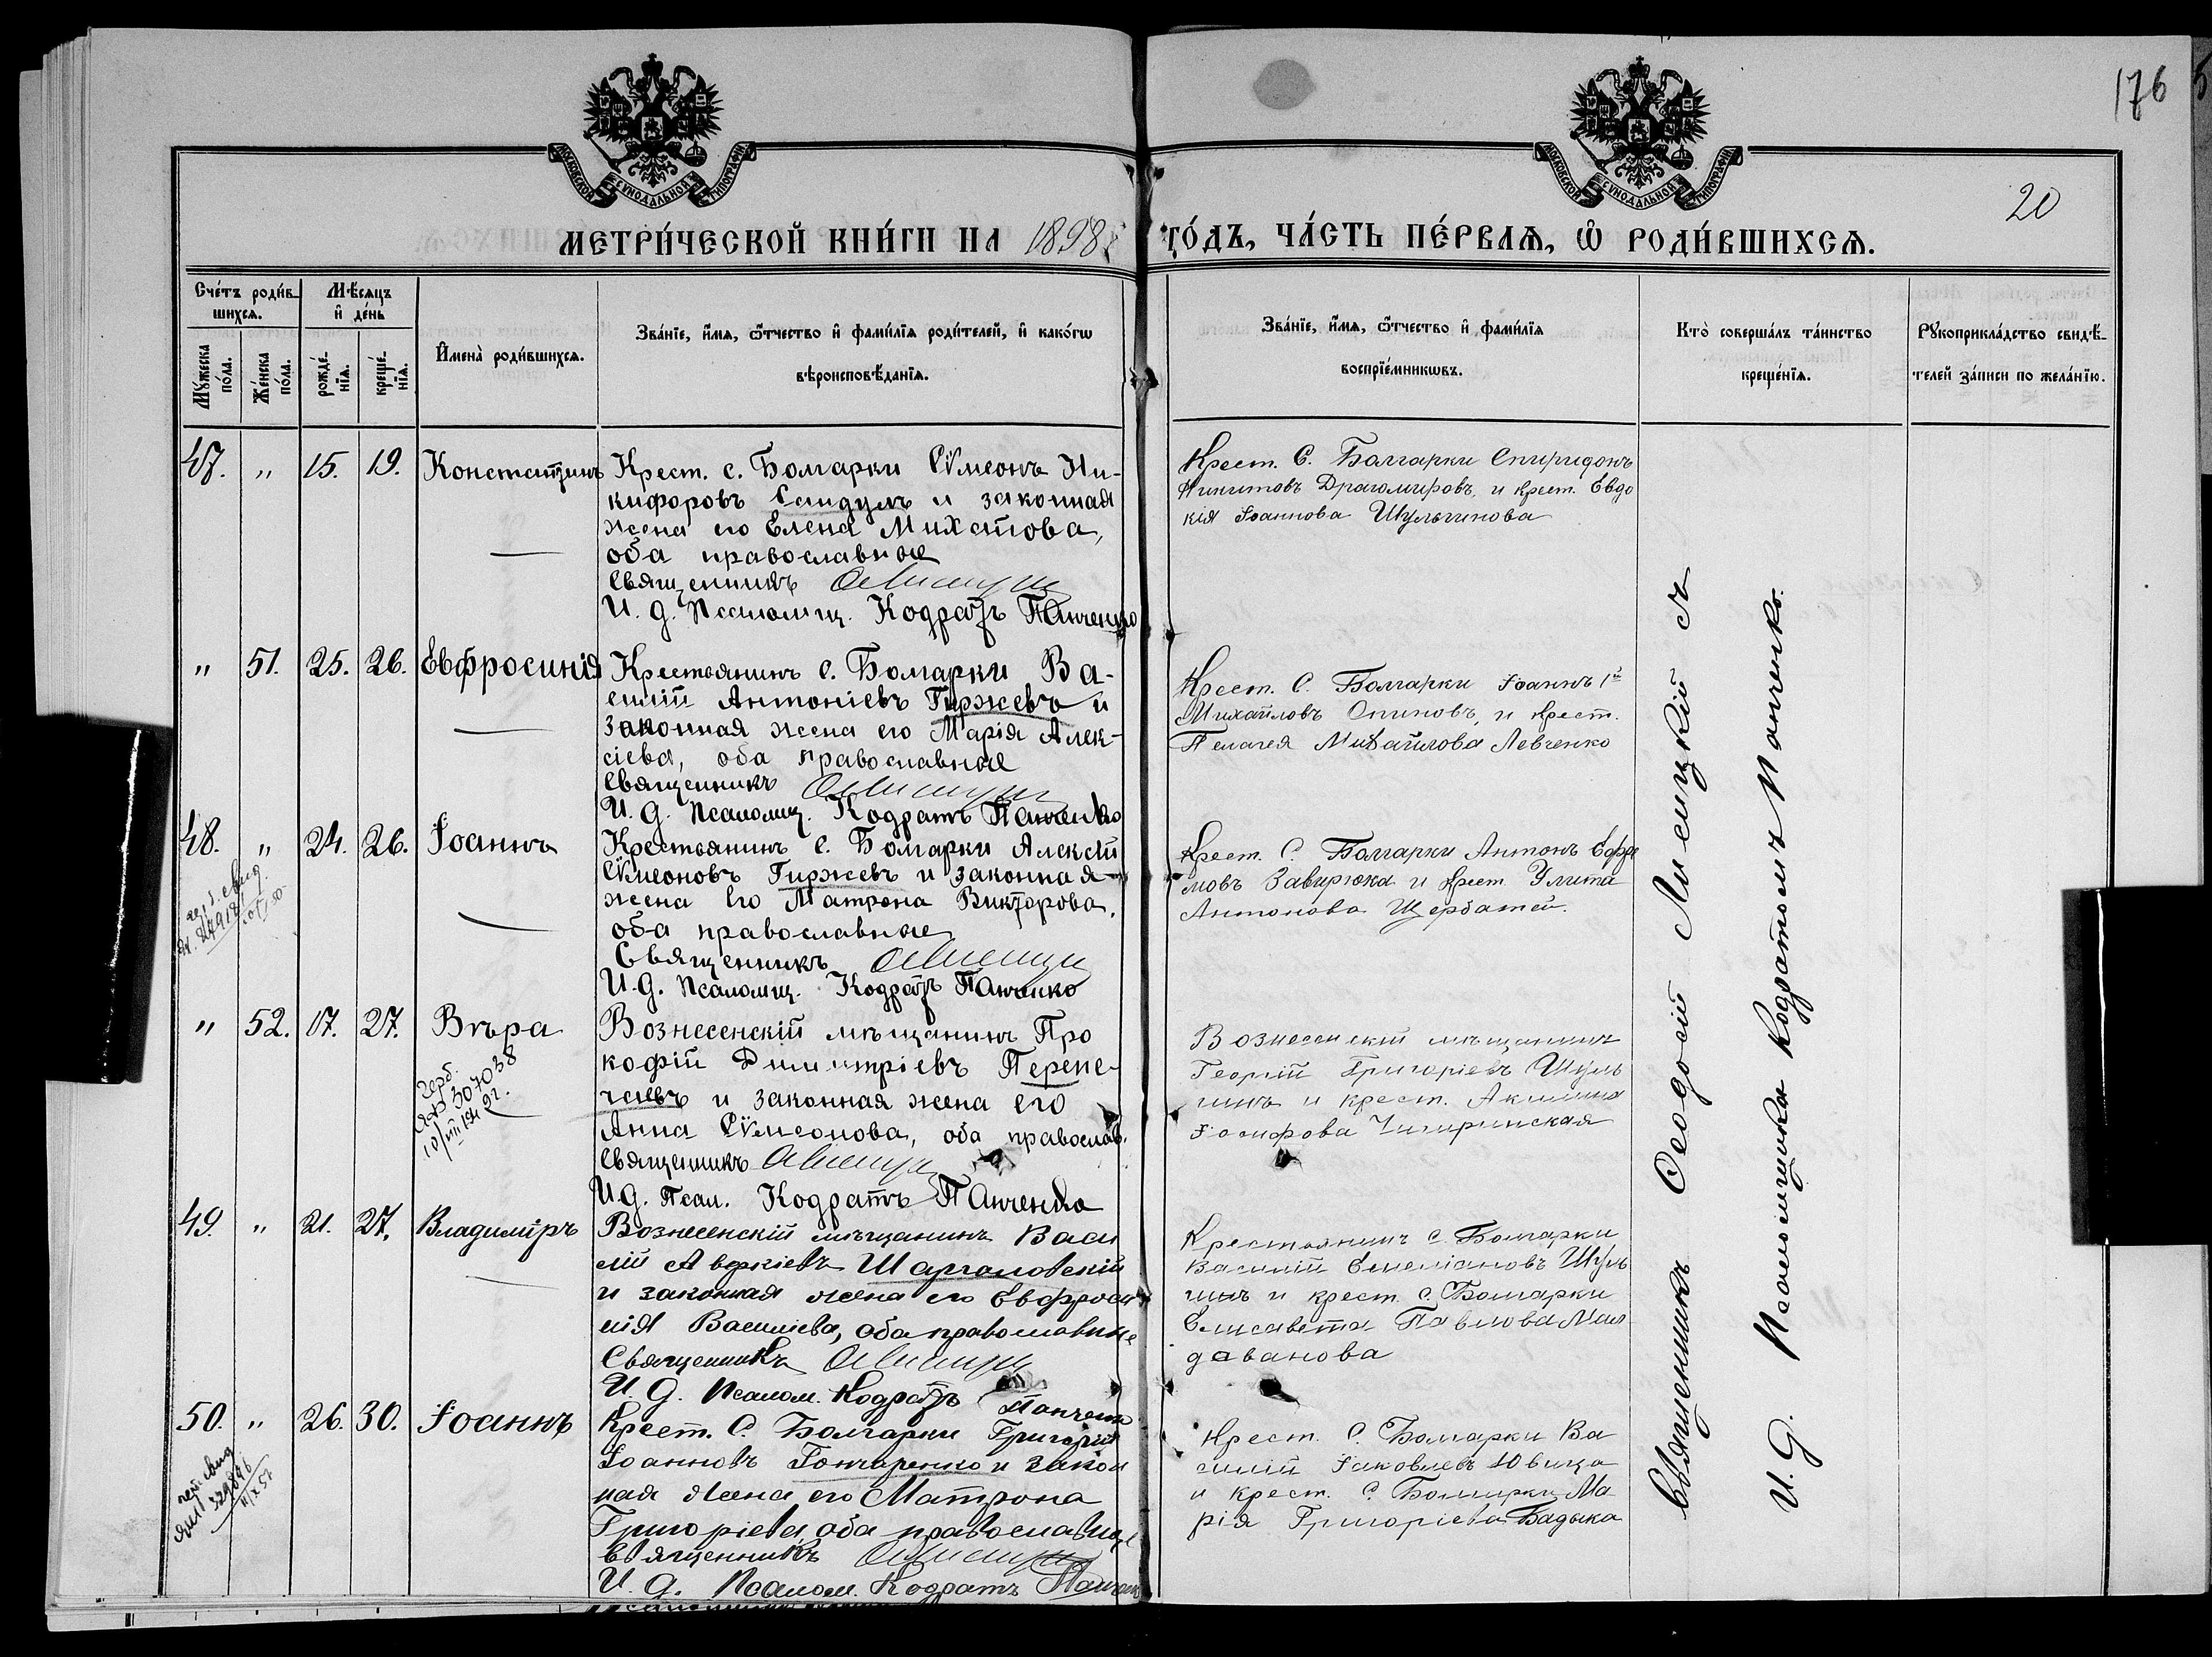 176
20
МОСКОВСКОЙ СѴНОДАЛЬНОЙ ТИПОГРАФІИ
МОСКОВСКОЙ СѴНОДАЛЬНОЙ ТИПОГРАФІИ
МЕТРИ́ЧЕСКОЙ КНИ́ГИ НА 1898 ГО́ДЪ, ЧА́СТЬ ПЕ́РВАѦ, Ѽ РОДИ́ВШИХСѦ.
Сче́тъ роди́в-
шихсѧ.
Мꙋ́жеска по́ла.
Же́нска по́ла.
Мѣ́сѧцъ
и҆ де́нь
рожде́-
нїѧ.
креще́-
нїѧ.
И҆мена̀ роди́вшихсѧ.
Зва́нїе, и҆́мѧ, ѻ҆́тчество и҆ фами́лїѧ роди́телей, и҆ како́гѡ
вѣроисповѣ́данїѧ.
Зва́нїе, и҆́мѧ, ѻ҆́тчество и҆ фами́лїѧ
воспрїе́мникѡвъ.
Кто̀ соверша́лъ та́инство
креще́нїѧ.
Рꙋкоприкла́дство свидѣ́-
телей за́писи по жела́нїю.
47. " 15. 19. Константинъ
Крест. с. Болгарки Сѵмеонъ Ни-
кифоровъ Сандулъ и законная
жена его Елена Михаилова,
оба православные
Священникъ
И. д. Псаломщ. Кодратъ Панченко
Крест. С. Болгарки Спиридонъ
Никитовъ Драгомировъ, и крест. Евдо
кія Іоаннова Шульгинова
" 51. 25. 26. Евфросинія
Крестьянинъ с. Болгарки Ва-
силій Антоніевъ Гиржевъ и
законная жена его Марія Алек-
сіева, оба православные
Священникъ
И. д. Псаломщ. Кодратъ Панченко
Крест. С. Болгарки Іоаннъ 1й
Михайловъ Опиновъ, и крест.
Пелагея Михайлова Левченко
48. " 24. 26. Іоаннъ
Крестьянинъ с. Болгарки Алексій
Сѵмеоновъ Гиржевъ и законная
жена его Матрона Викторова,
оба православные
Священникъ
И. д. Псаломщ. Кодратъ Панченко
Крест. С. Болгарки Антонъ Ефре
мовъ Завирюха и крест. Улита
Антонова Щербатей.
" 52. 17. 27. Вѣра
Герб.
307038
Вознесенскій мѣщанинъ Про
кофій Димитріевъ Перепе-
and законная жена его
Анна Сѵмеонова, оба православ.
Священникъ
И. д. Псал. Кодратъ Панченко
Вознесенскій мѣщанинъ
Георгій Григоріевъ Шуль
гинъ и крест. Акилина
Іосифова Чигиринская
49. " 21. 27. Владиміръ
Вознесенскій мѣщанинъ Васи
лій Аверкіевъ Шаргаловскій
и законная жена его Евфроси
нія Василіева, оба православные
Священникъ
И. д. Псалом. Кодратъ Панченко
Крестьянинъ с. Болгарки
Василій Емеліановъ Шуль
гинъ и крест. с. Болгарки
Елисавета Павлова Мол
даванова
50. " 26. 30. Іоаннъ
Крест. С. Болгарки Григорій
Іоанновъ Гончаренко и закон
ная жена его Матрона
Григоріева, оба православные
Священникъ
И. д. Псалом. Кодратъ Панченко
Крест. С. Болгарки Ва
силій Іаковлевъ Ювица
и крест. С. Болгарки Ма
рія Григоріева Бадыка
Священникъ Ѳеодосій Лисицкій съ
И. д. Псаломщика Кодратомъ Панченко.